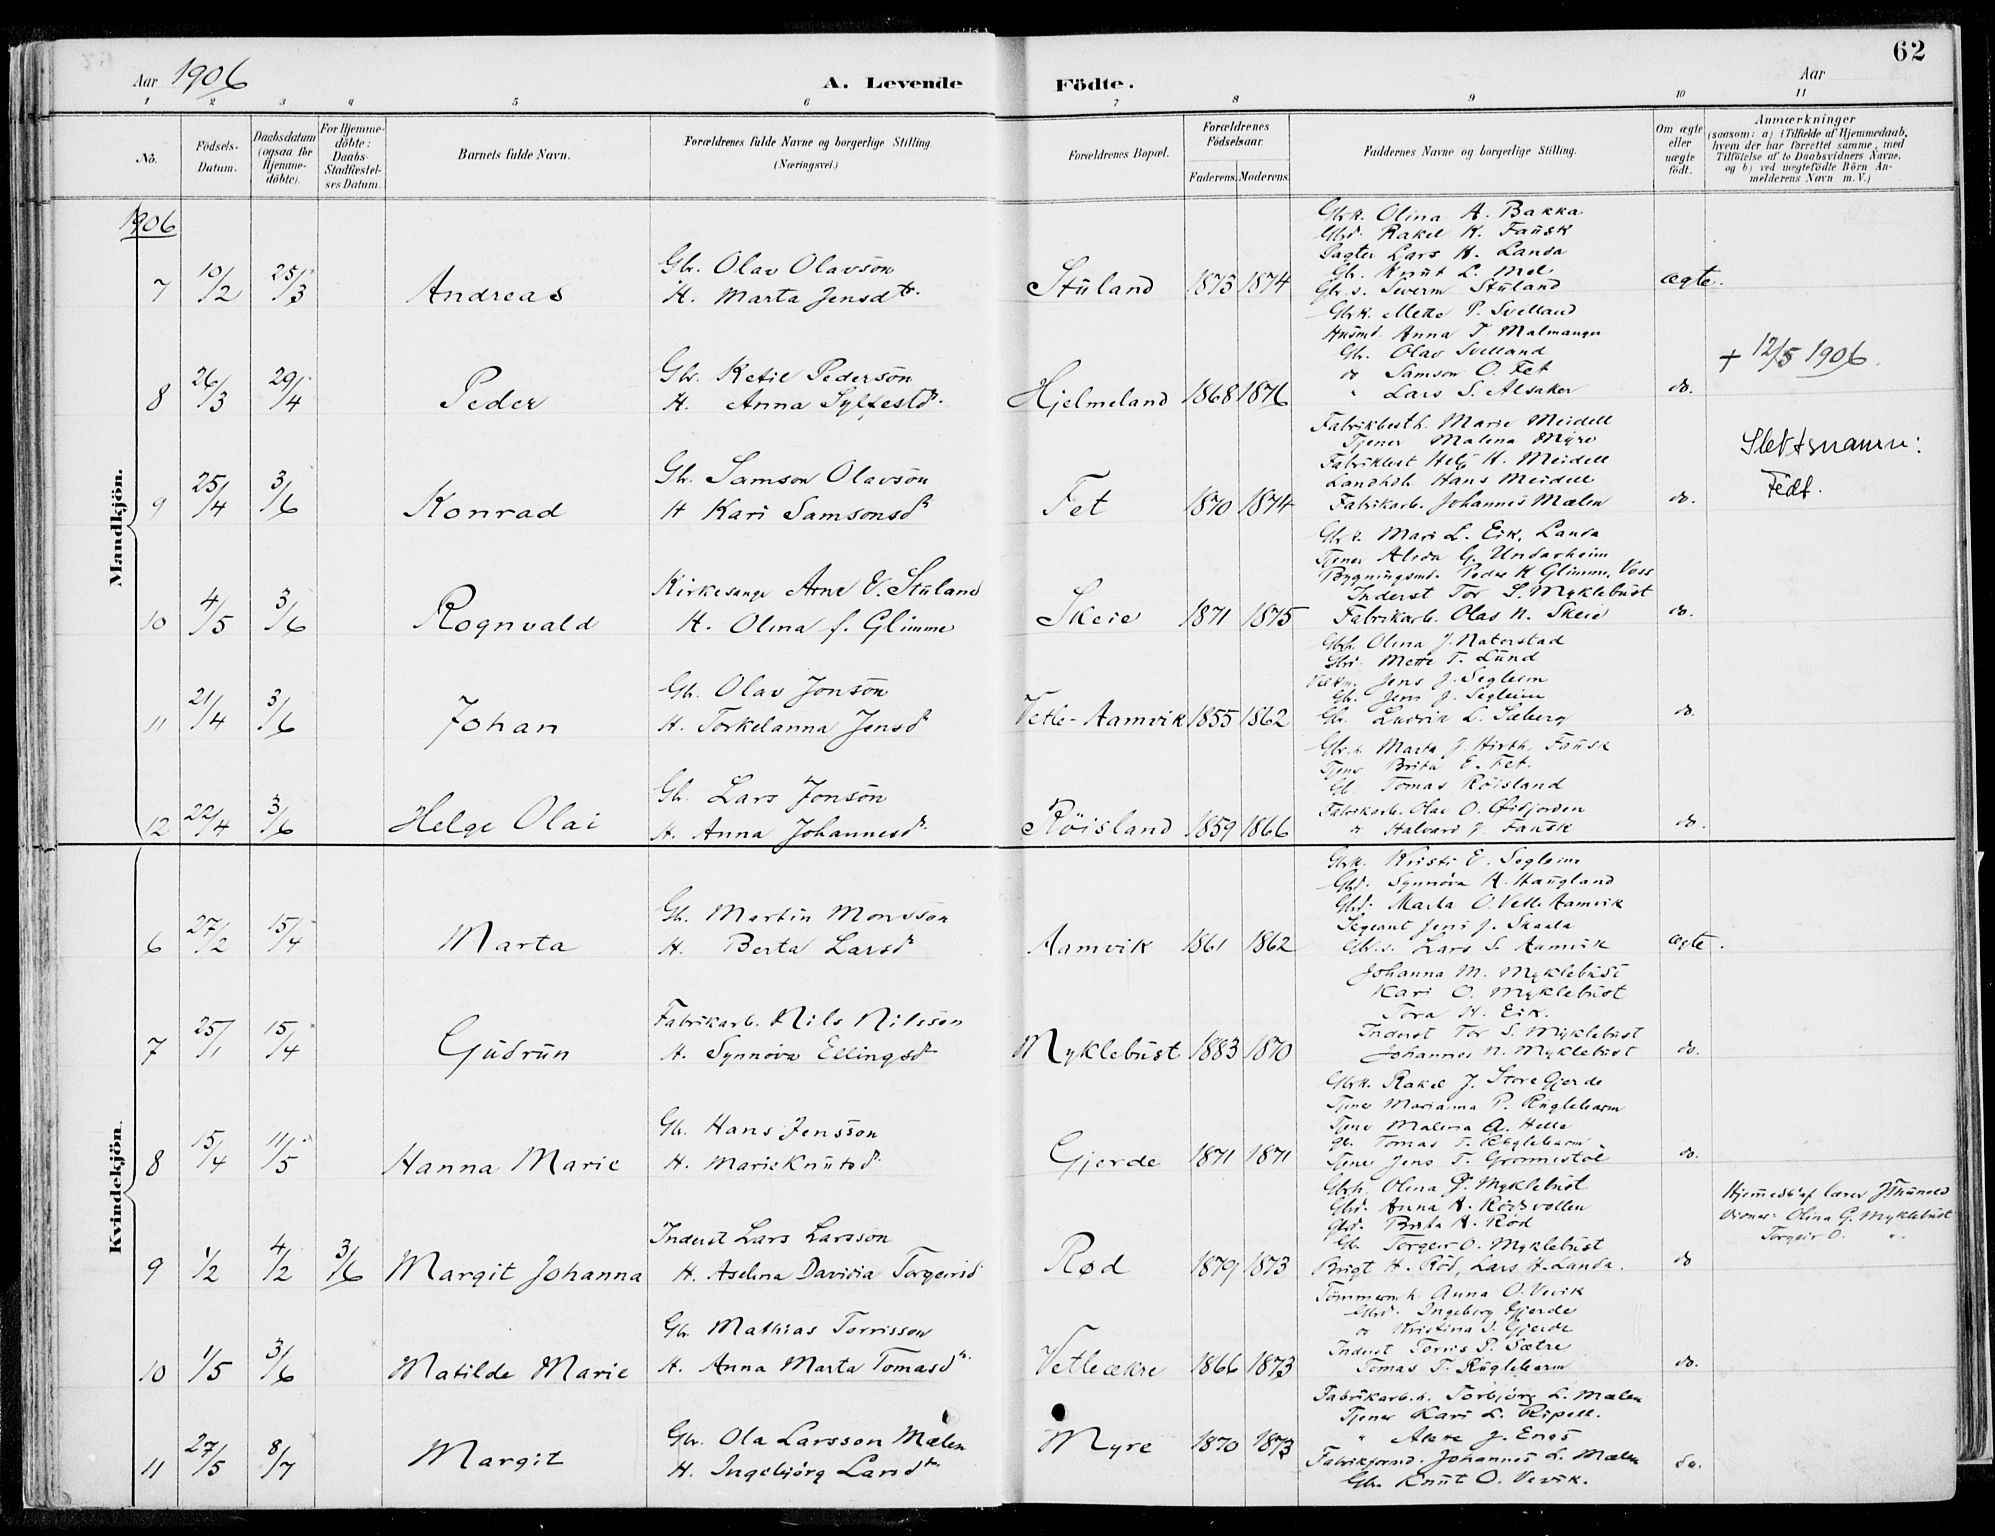 62
Aar 1906
A. Levende Födte.
Aar
1 2 3 4 5 6 7 8 9 10 11
No.
Födsels-Datum.
Daabsdatum (ogsaa for Hjemme-döbte).
For Hjemme-döbte: Daabs-Stadfæstel-ses Datum.
Barnets fulde Navn.
Forældrenes fulde Navne og borgerlige Stilling (Næringsvei.)
Forældrenes Bopæl.
Forældrenes Födselsaar.
Faderens. Moderens.
Faddernes Navne og borgerlige Stilling.
Om ægte eller uægte födt.
Anmærkninger
(saasom: a) i Tilfælde af Hjemmedaab,
hvem der har forrettet samme, med
Tilföielse af to Daabsvidners Navne,
og b) ved uægtefödte Börn An-
melderens Navn m. V.)
1906
Mandkjön.
7 10/2 25/3 Andreas
Gbr. Olav Olavson
H. Marta Jensdtr.
Stuland 1873 1874
Gbrk. Olina A. Bakka
Gbrd. Rakel K. Fausk
Lars H. Landa
Gbr. Knut L. Mel
Gbr.s. Severin Stuland
ægte.
8 26/3 29/4 Peder
Gbr. Ketil Pederson
H. Anna Sylfestdr.
Hjelmeland 1868 1876
Gbrk. Mette P. Svelland
Husmd. Anna T. Malmanger
Gbr. Olav Svelland
do Samson O. Fet
" Lars S. Alsaker
do.
+ 12/5 1906.
9 25/4 3/6 Konrad
Gbr. Samson Olavson
H Kari Samsonsdr
Fet 1870 1874
Fabrikbest.h. Marie Meidell
Tjener Malena Myre
Fabrikbest Helj H. Meidell
Landhdl. Hans Meidell
Fabrikarb. Johannes Mælen
do.
Slektsnamn:
Fedt.
10 4/5 3/6 Rognvald
Kirkesanger Arne E. Stuland
H. Olina f. Glimme
Skeie 1871 1875
Mari L. Eik, Landa
Tjener Alida G. Undarheim
Bygningsmd. Peder K Glimme, Voss
Inderst Tor S. Myklebust
Fabrikarb. Olas N. Skeie
do.
11 21/4 3/6 Johan
Gbr. Olav Jonson
H. Torkelanna Jensdr
Vetle-Aamvik 1855 1862
Gbrh. Olina J. Naterstad
Gbrd. Mette T. Lund
Jens J. Segleim
Gbr. Jens J. Segleim
Gbr. Ludvig L. Sæberg
do.
12 22/4 3/6 Helge Olai
Gbr. Lars Jonson
H. Anna Johannesdr.
Röisland 1859 1866
Gbr.h. Marta J. Hirth, Fausk
Tjener Brita E. Fet.
Gb. Tomas Röisland
Fabrikarb. Olai O. Øifjorden
" Halvard J. Fausk
do.
Kvindekjön.
6 27/2 15/4 Marta
Gbr. Martin Monsson
H. Berta Larsdr
Aamvik 1861 1862
Gbrk. Kristi E. Segleim
Gbrd. Synnöva H. Haugland
Gbrd. Marta O. Vetle Aamvik
Sergeant Jens J. Skaala
Gbr.s. Lars S. Aamvik
ægte.
7 25/1 15/4 Gudrun
Fabrikarb. Nils Nilsson
H. Synnöva Ellingsdr
Myklebust 1883 1870
Johanna M. Myklebust
Kari O. Myklebust
Tora H. Eik.
Inderst Tor S. Myklebust
Johannes N. Myklebust
do.
8 15/4 11/5 Hanna Marie
Gbr. Hans Jensson
H. Marie Knutsdr.
Gjerde 1871 1871
Gbrk. Rakel J. Store Gjerde
Tjener Marianna P. Ruglebarm
Tjener Malena A. Helle
Gbr. Tomas T. Ruglebarm
Tjener Jens T. Grönnestöl
do.
9 1/2 4/2 3/6 Margit Johanna
Inderst Lars Larsson
H. Aselina Davidia Torgeirsdr
Rød 1879 1873
Gbrh. Olina G. Myklebust
Gbrd. Anna A. Rödsvollen
Gbrd. Brita H. Röd
Gb. Torgeir O. Myklebust
Brigt H. Röd, Lars H. Landa.
do
Hjemmedb. af lærer J Thuned
Vidner: Olina G. Myklebust
Torgeir O. "
10 1/5 3/6 Matilde Marie
Gbr Mathias Torrisson
H. Anna Marta Tomasdr.
Vetleækre 1866 1873
Tömmerm.h. Anna O. Vevik
Gbrd. Ingeborg Gjerde
do Kristina J. Gjerde
Inderst Torris P. Sætre
Tomas T. Ruglebarm
do.
11 27/5 8/7 Margit
Gbr. Ola Larsson Mælen
H. Ingebjörg Larsdtr.
Myre 1870 1873
Fabrikarb.h. Torbjörg L. Mælen
Tjener Kari L. Ripell.
" J. Enes
Fabrikformd. Johannes L. Mælen
Gbr. Knut O. Vevik.
do.